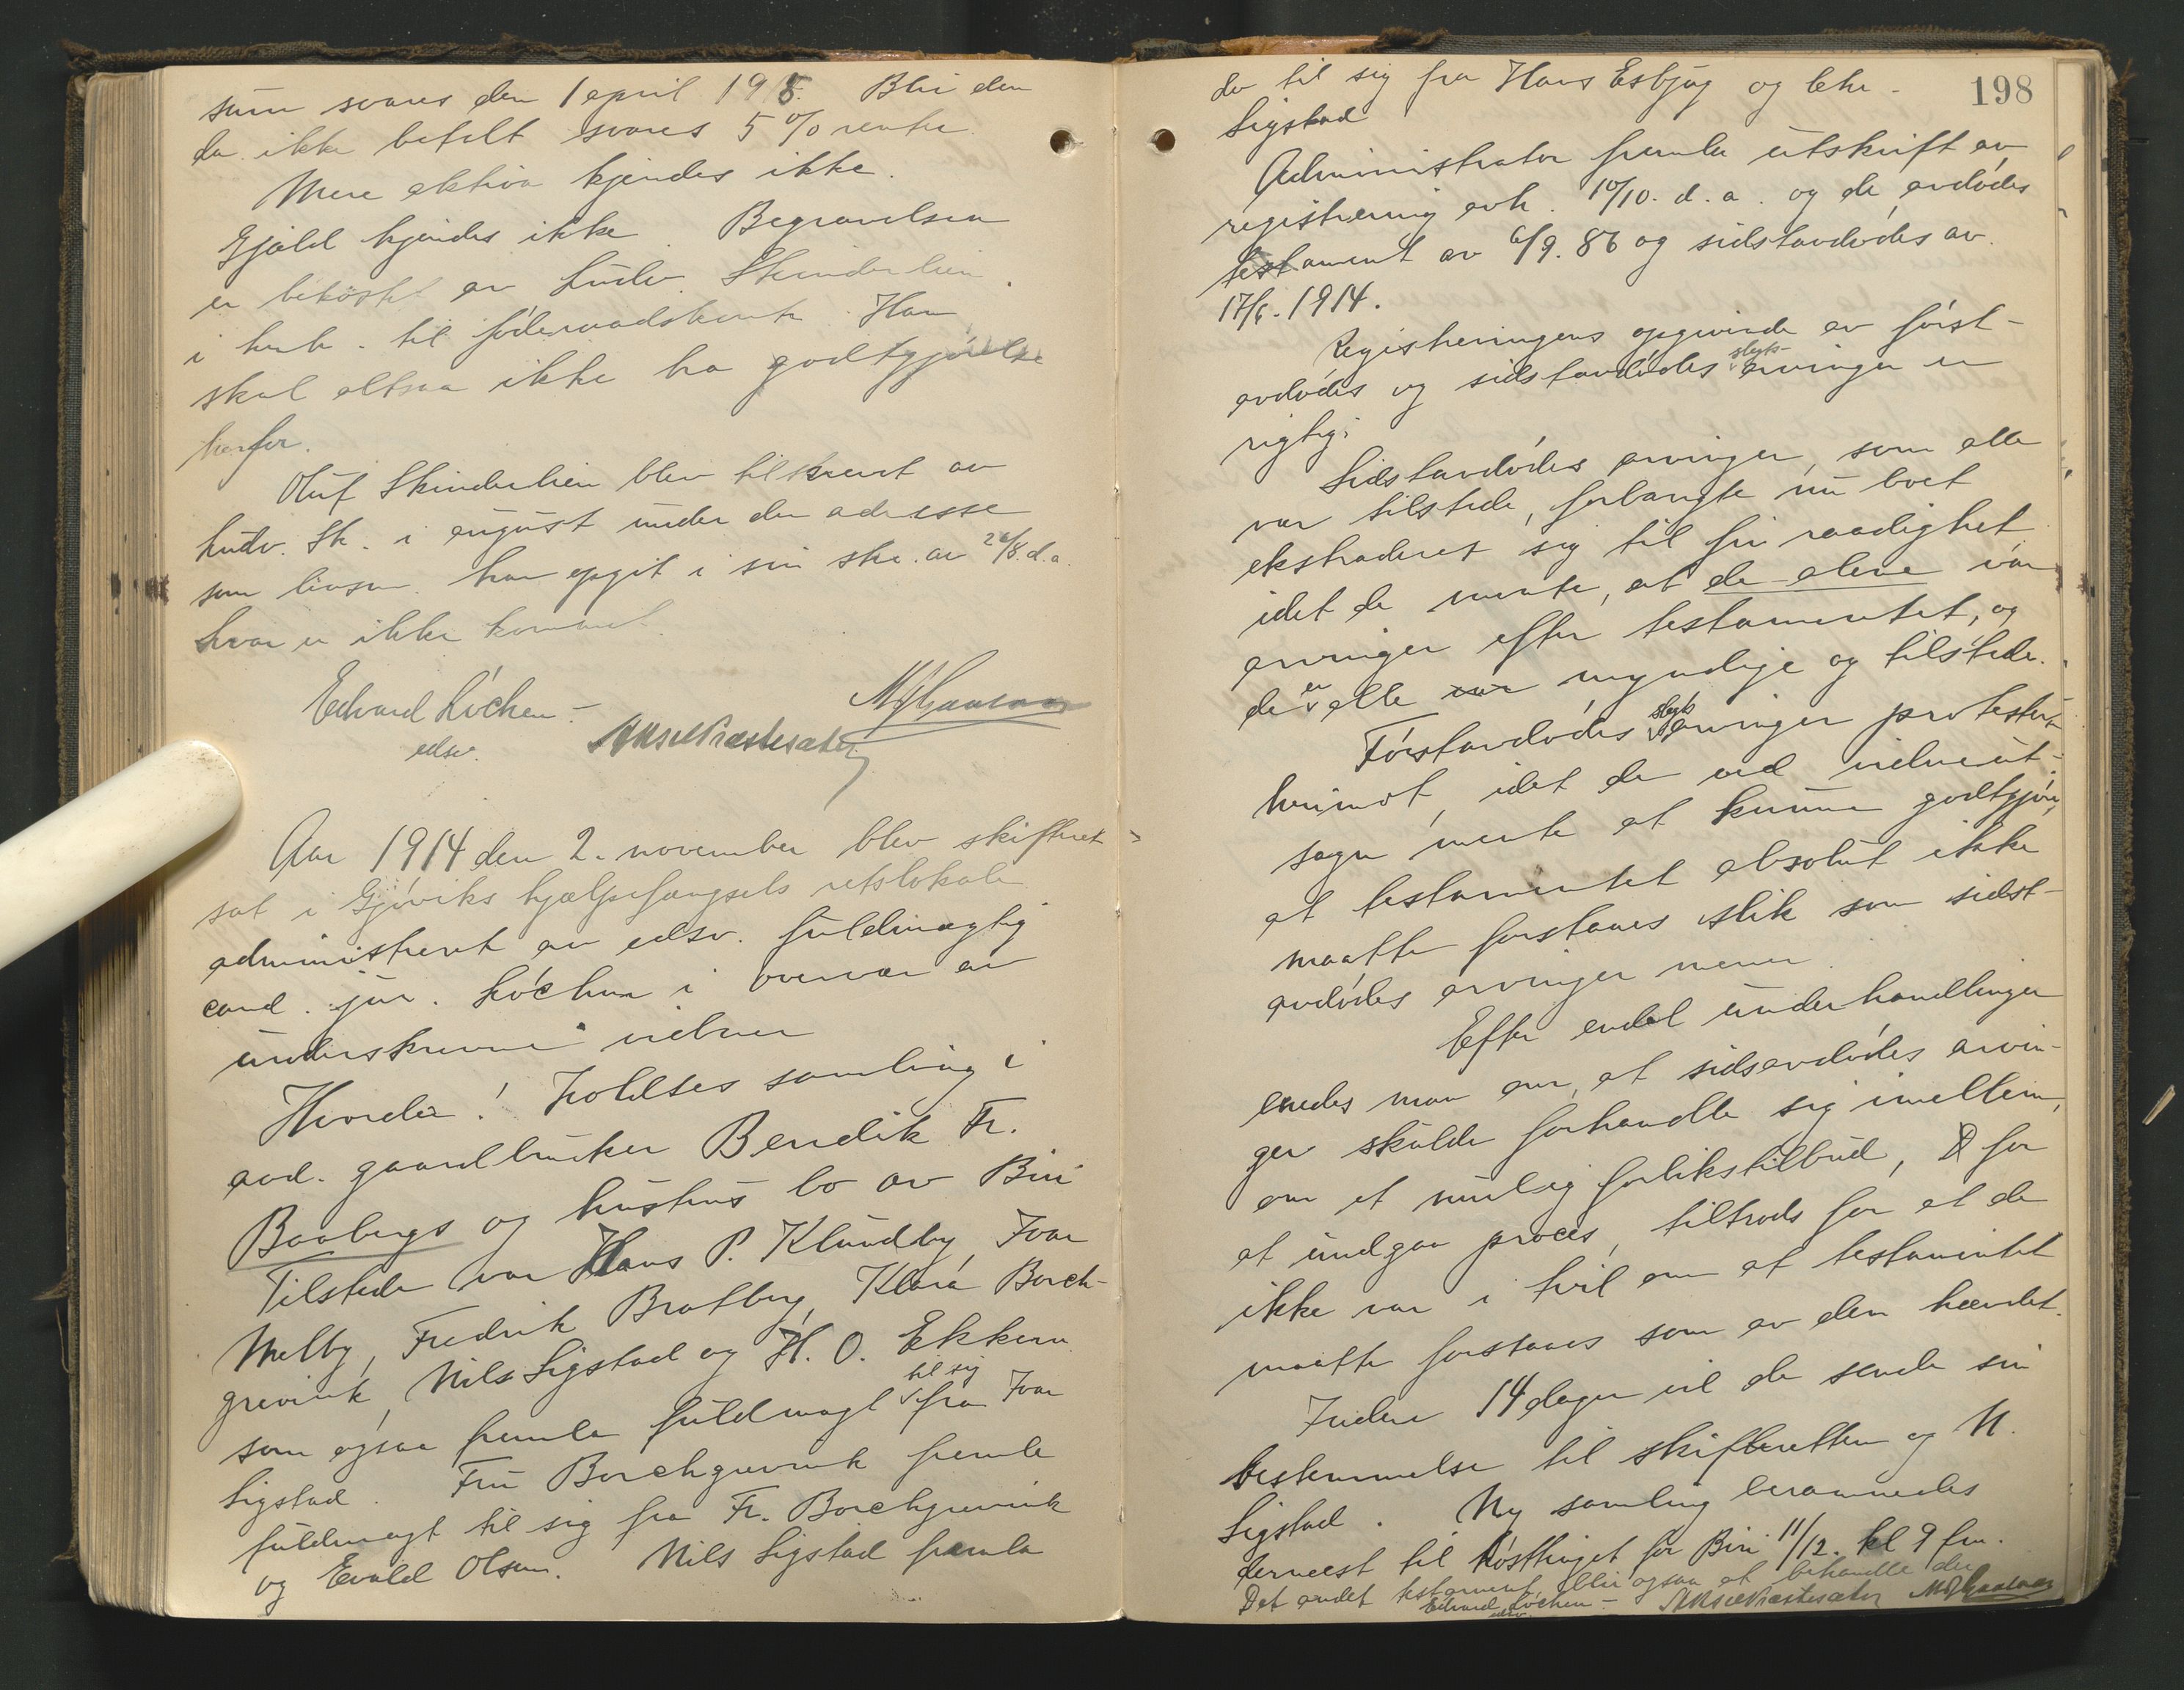 sum svares den 1 april 1918. Blir den
da ikke betalt svares 5 % rente.
Mere aktiva kjendes ikke.
Gjæld kjendes ikke. Begravelsen
er bekostet av Ludv. Skinderlien
i henh. til føderaadskontr. Han
skal altsaa ikke ha godtgjørelse
herfor.
Oluf Skinderlien blev tilskrevet av
Ludv. Sk. i august under den adresse
som han opgit i sin skr. av 26/8. d.a.
Svar er ikke kommet.
Edvard Löchen
edsv.
Aar 1914 den 2. november blev skifteret
sat i Gjøviks hjælpefængsels retslokale
administrert av edsv. fuldmægtig
cand. jur. Löchen i overvær av
underskrevne vidner
Hvorda! Holdtes samling i
avd. gaardbruker Bendik Fr.
Baabergs og hustrus bo av Biri
Tilstede var Hans P. Klundby, Ivar
Melby, Fredrik Bratberg, Klara Borch-
grevink, Nils Sigstad og H. O. Ekkern
som ogsaa fremla fuldmagt til sig fra Ivar
Sigstad. Fru Borchgrevink fremla
fuldmagt til sig fra Fr. Borchgrevink
og Evald Olsen. Nils Sigstad fremla
198
do til sig fra Hans Esbjug og
Sigstad
Administrator fremla utskrift av
registrering avh. 10/10. d. a. og de avdødes
testament av 6/9. 86 og sidstavdødes av
17/6. 1914.
Registreringens opgivende av først-
avdødes og sidstavdødes slegts-arvinger er
rigtig.
Sidstavdødes arvinger, som alle
var tilstede, forlangte nu boet
ekstraderet sig til fri raadighet
idet de mente, at de alene var
arvinger efter testamentet, og
de er alle var myndige og tilstede.
Førstavdødes slegts arvinger protesterte
herimot, idet de ved vidneut-
sagn mente at kunne godtgjøre,
at testamentet absolut ikke
maatte forstaaes slik som sidst-
avdødes arvinger mener.
Efter endel underhandlinger
enedes man om, at sidsavdødes arvin-
ger skulde forhandle sig imellem,
om et mulig forlikstilbud, for
at undgaa proces, tiltrods for at de
ikke var i tvil om at testamentet
maatte forstaaes som av dem hævdet.
Inden 14 dager vil de sende sin
bestemmelse til skifteretten og N.
Sigstad. Ny samling berammedes
dernæst til høsttinget for Biri 11/12. kl 9 fm.
Det andet testament blir ogsaa at behandle der
Edvard Löchen
edsv.